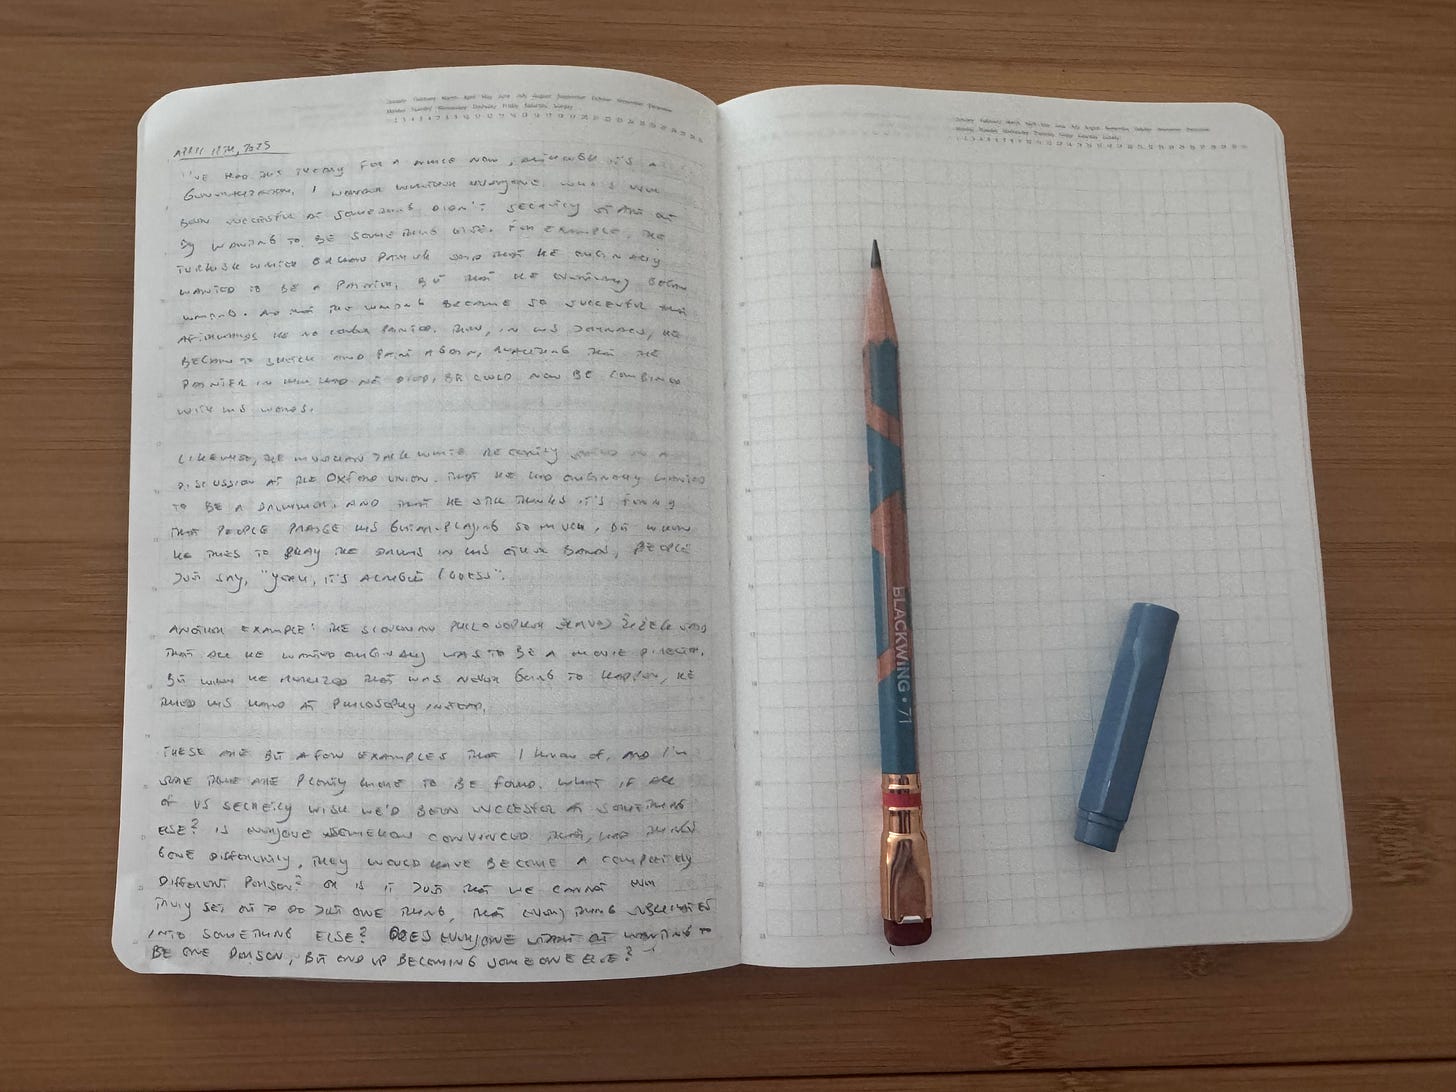 January February March April May June July August September October November December
Monday Tuesday Wednesday Thursday Friday Saturday Sunday
1 2 3 4 5 6 7 8 9 10 11 12 13 14 15 16 17 18 19 20 21 22 23 24 25 26 27 28 29 30 31
APRIL 2025
I'VE HAD THIS THEORY FOR A WHILE NOW, ALTHOUGH IT'S A
GENERALIZATION. I WONDER WHETHER EVERYONE WHO'S EVER
BEEN SUCCESSFUL AT SOMETHING DIDN'T SECRETLY START OUT
BY WANTING TO BE SOMETHING ELSE. FOR EXAMPLE, THE
TURKISH WRITER ORHAN PAMUK SAID THAT HE ORIGINALLY
WANTED TO BE A PAINTER, BUT THAT HE EVENTUALLY BEGAN
WRITING. AND THAT THE WRITING BECAME SO SUCCESSFUL THAT
HE NO LONGER PAINTED. THEN, IN HIS JOURNALS, HE
BEGAN TO SKETCH AND PAINT AGAIN, REALIZING THAT THE
PAINTER IN HIM HAD NOT DIED, BUT COULD NOW BE COMBINED
WITH HIS WORDS.
LIKEWISE, THE MUSICIAN JACK WHITE RECENTLY IN A
DISCUSSION AT THE OXFORD UNION THAT HE HAD ORIGINALLY WANTED
TO BE A DRUMMER, AND THAT HE STILL THINKS IT'S FUNNY
THAT PEOPLE PRAISE HIS GUITAR-PLAYING SO MUCH, BUT WHEN
HE TRIES TO PLAY THE DRUMS IN HIS OTHER BANDS, PEOPLE
JUST SAY, "YEAH, IT'S ALRIGHT I GUESS".
ANOTHER EXAMPLE: THE SLOVENIAN PHILOSOPHER SLAVOJ ŽIŽEK SAID
THAT ALL HE WANTED ORIGINALLY WAS TO BE A MOVIE DIRECTOR.
BUT WHEN HE REALIZED THAT WAS NEVER GOING TO HAPPEN, HE
TRIED HIS HAND AT PHILOSOPHY INSTEAD.
THESE ARE BUT A FEW EXAMPLES THAT I KNOW OF, AND I'M
SURE THERE ARE PLENTY MORE TO BE FOUND. WHAT IF ALL
OF US SECRETLY WISH WE'D BEEN SUCCESSFUL AT SOMETHING
ELSE? IS EVERYONE SOMEHOW CONVINCED THAT, HAD THINGS
GONE DIFFERENTLY, THEY WOULD HAVE BECOME A COMPLETELY
DIFFERENT PERSON? OR IS IT JUST THAT WE CANNOT EVER
TRULY SET OUT TO DO JUST ONE THING, THAT EVERYTHING
INTO SOMETHING ELSE? DOES EVERYONE START OUT WANTING TO
BE ONE PERSON, BUT END UP BECOMING SOMEONE ELSE?
January February March April May June July August September October November December
Monday Tuesday Wednesday Thursday Friday Saturday Sunday
1 2 3 4 5 6 7 8 9 10 11 12 13 14 15 16 17 18 19 20 21 22 23 24 25 26 27 28 29 30 31
BLACKWING • 71